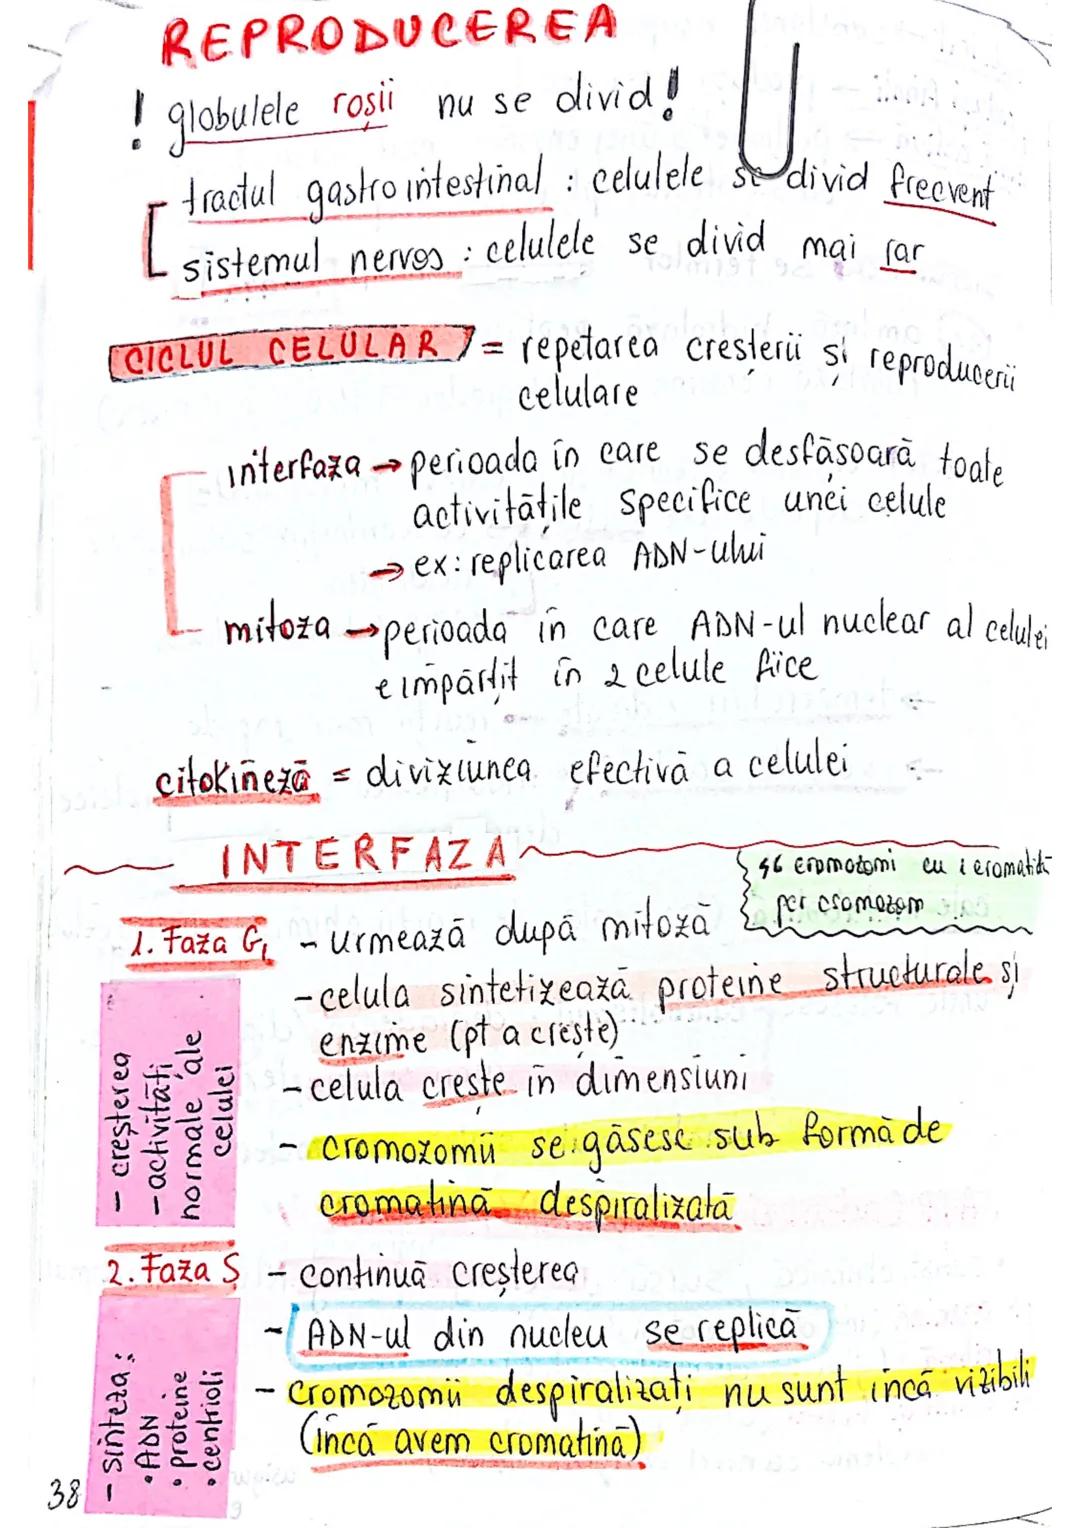 REPRODUCEREA
! globulele roșii nu se divid!
tractul gastrointestinal : celulele se divid frecvent
sistemul nervos : celulele se divid mai rar
CICLUL CELULAR = repetarea creșterii și reproducerii
celulare
interfaza → perioada în care se desfășoară toate
activitățile specifice unei celule
→ ex: replicarea ADN-ului
mitoza → perioada în care ADN-ul nuclear al celulei
e împărțit în 2 celule fiice
citokineză = diviziunea efectivă a celulei
INTERFAZA
46 cromozomi cu 1 cromatidă
per cromozom
1. Faza G₁ - urmează după mitoză
- celula sintetizează proteine structurale și
enzime (pt a crește)
- celula crește în dimensiuni
- cromozomii se găsesc sub formă de
cromatină despiralizată
- creșterea
- activități
normale ale
celulei
2. Faza S - continuă creșterea
- ADN-ul din nucleu se replică
- cromozomii despiralizați nu sunt încă vizibili
(încă avem cromatină)
- sinteza:
• ADN
• proteine
• centrioli
38